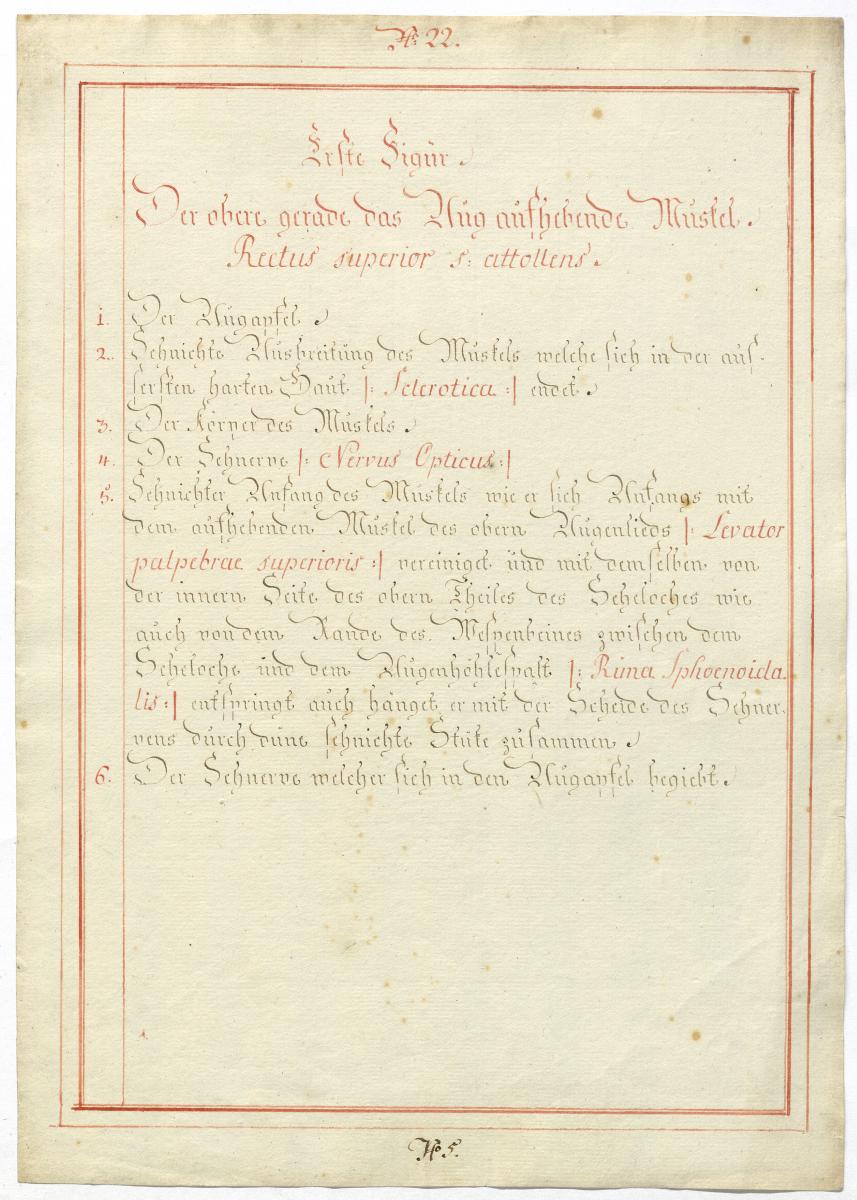 N: 22.
Erste Figur.
Der obere gerade das Aug aufhebende Muskel.
Rectus superior s: attollens.
1. Der Augapfel.
2. Sehnichte Ausbreitung des Muskels welche sich in der aus-
sersten harten Haut |: Sclerotica :| endet.
3. Der Körper des Muskels.
4. Der Sehnerve |: Nervus Opticus :|
5. Sehnichter Anfang des Muskels wie er sich Anfangs mit
dem aufhebenden Muskel des obern Augenlieds |: Levator
palpebrae superioris :| vereiniget und mit demselben von
der innern Seite des obern Theiles des Seheloches wie
auch von dem Rande des Wespenbeines zwischen dem
Seheloche und dem Augenhöhlespalt |: Rima Sphoenoida
lis :| entspringt auch hänget er mit der Scheide des Sehner-
vens durch düne sehnichte Stüke zusammen.
6. Der Sehnerve welcher sich in den Augapfel begiebt.
No 5.